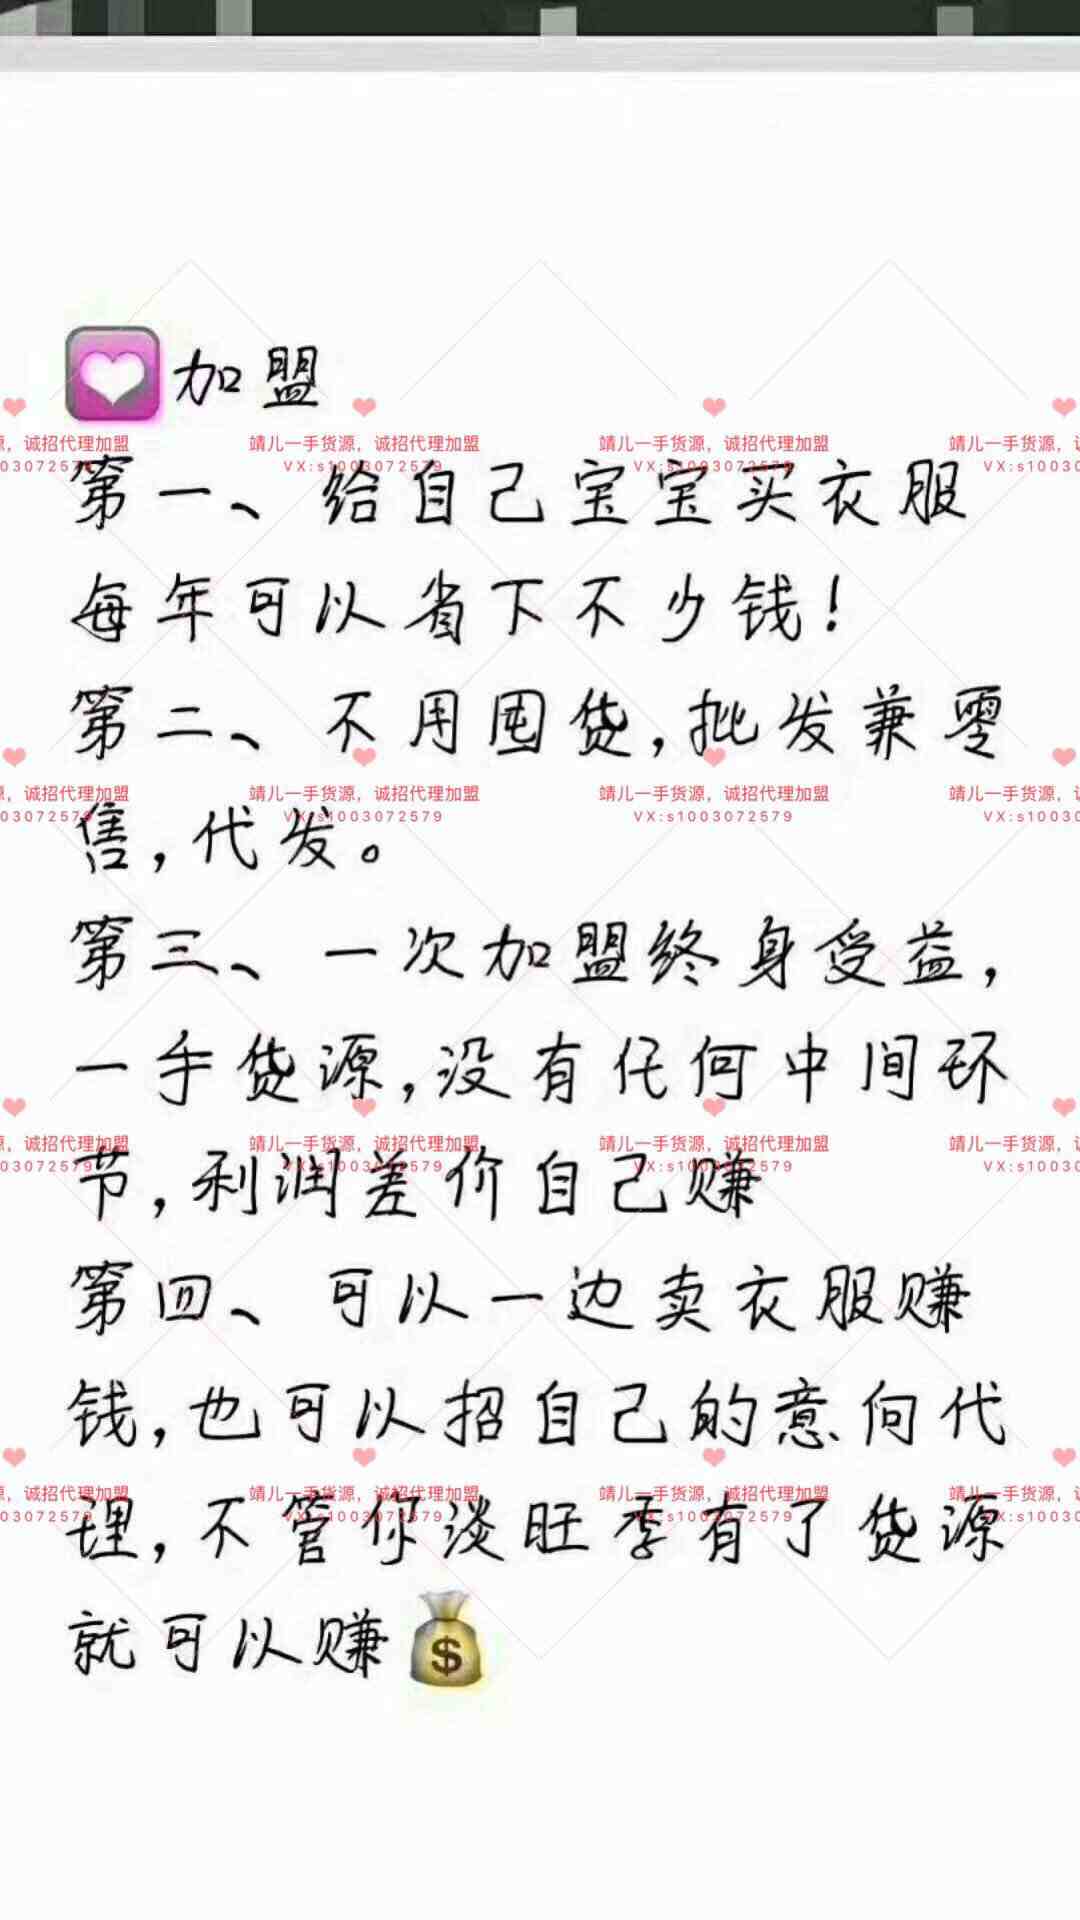 加盟
第一、给自己宝宝买衣服
每年可以省下不少钱！
第二、不用囤货，批发兼零
售，代发。
第三、一次加盟终身受益，
一手货源，没有任何中间环
节，利润差价自己赚
第四、可以一边卖衣服赚
钱，也可以招自己的意向代
理，不管你淡旺季有了货源
就可以赚
靖儿一手货源，诚招代理加盟
VX:s1003072579